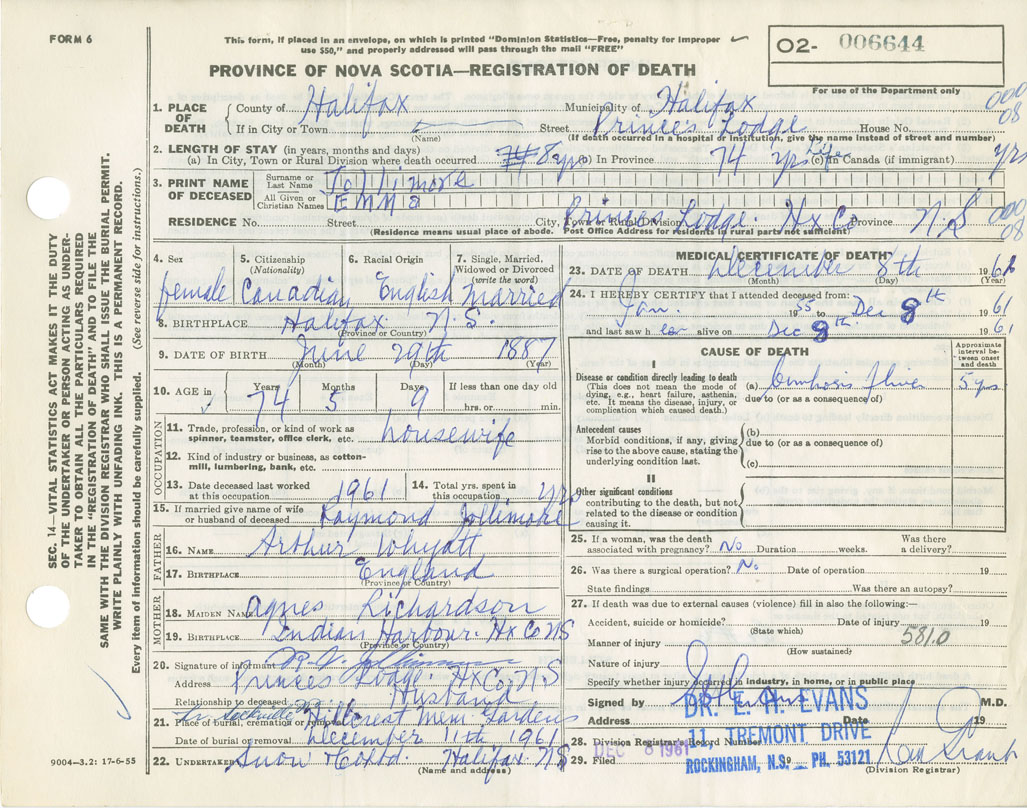 FORM 6
This form, if placed in an envelope, on which is printed "Dominion Statistics—Free, penalty for improper
use $50," and properly addressed will pass through the mail "FREE"
O2- 006644
PROVINCE OF NOVA SCOTIA—REGISTRATION OF DEATH
For use of the Department only
1. PLACE OF DEATH County of Halifax Municipality of Halifax 000 08
If in City or Town (Name) Street Prince's Lodge House No.
(If death occurred in a hospital or institution, give the name instead of street and number)
2. LENGTH OF STAY (in years, months and days)
(a) In City, Town or Rural Division where death occurred 8 yrs (b) In Province 74 yrs (c) In Canada (if immigrant) Life yrs
3. PRINT NAME OF DECEASED Surname or Last Name Jollimore
All Given or Christian Names Emma
RESIDENCE No. Street City, Town or Rural Division Princes Lodge Hx Co Province N.S 000 08
(Residence means usual place of abode. Post Office Address for residents in rural parts not sufficient)
4. Sex female
5. Citizenship (Nationality) Canadian
6. Racial Origin English
7. Single, Married, Widowed or Divorced (write the word) Married
8. BIRTHPLACE Halifax N.S.
(Province or Country)
9. DATE OF BIRTH June 29th 1887
(Month) (Day) (Year)
10. AGE in Years 74 Months 5 Days 9 If less than one day old
hrs. or min.
OCCUPATION
11. Trade, profession, or kind of work as
spinner, teamster, office clerk, etc. housewife
12. Kind of industry or business, as cotton-
mill, lumbering, bank, etc.
13. Date deceased last worked
at this occupation 1961
14. Total yrs. spent in
this occupation yrs
15. If married give name of wife
or husband of deceased Raymond Jollimore
FATHER
16. NAME Arthur Whyatt
17. BIRTHPLACE England
(Province or Country)
MOTHER
18. MAIDEN NAME Agnes Richardson
19. BIRTHPLACE Indian Harbour Hx Co NS
(Province or Country)
20. Signature of informant R. V. Jollimore
Address Princes Lodge Hx Co. N.S
Relationship to deceased Husband
21. Place of burial, cremation or removal Hillcrest Mem. Gardens
Date of burial or removal December 11th 1961
22. UNDERTAKER Snow & Co Ltd. Halifax NS
(Name and address)
MEDICAL CERTIFICATE OF DEATH
23. DATE OF DEATH December 8th 1961
(Month) (Day) (Year)
24. I HEREBY CERTIFY that I attended deceased from:
Jan. 1955 to Dec 8th 1961
and last saw her alive on Dec 8th. 1961
CAUSE OF DEATH
Approximate interval between onset and death
I
Disease or condition directly leading to death
(This does not mean the mode of
dying, e.g., heart failure, asthenia,
etc. It means the disease, injury, or
complication which caused death.)
(a) Cirrhosis of liver 5 yrs
due to (or as a consequence of)
Antecedent causes
Morbid conditions, if any, giving
rise to the above cause, stating the
underlying condition last.
(b)
due to (or as a consequence of)
(c)
II
Other significant conditions
contributing to the death, but not
related to the disease or condition
causing it.
25. If a woman, was the death
associated with pregnancy? No Duration weeks. Was there a delivery?
26. Was there a surgical operation? No Date of operation 19
State findings Was there an autopsy?
27. If death was due to external causes (violence) fill in also the following:—
Accident, suicide or homicide? Date of injury 19
(State which)
Manner of injury 581.0
(How sustained)
Nature of injury
Specify whether injury occurred in industry, in home, or in public place
Signed by M.D.
DR. E. H. EVANS
Address Date 19
11 TREMONT DRIVE
28. Division Registrar's Record Number
ROCKINGHAM, N.S. PH. 53121
29. Filed DEC 8 1961 19
(Division Registrar)
SEC. 14—VITAL STATISTICS ACT MAKES IT THE DUTY
OF THE UNDERTAKER OR PERSON ACTING AS UNDER-
TAKER TO OBTAIN ALL THE PARTICULARS REQUIRED
IN THE "REGISTRATION OF DEATH" AND TO FILE THE
SAME WITH THE DIVISION REGISTRAR WHO SHALL ISSUE THE BURIAL PERMIT.
WRITE PLAINLY WITH UNFADING INK. THIS IS A PERMANENT RECORD.
Every item of information should be carefully supplied. (See reverse side for instructions.)
9004—3.2: 17-6-55